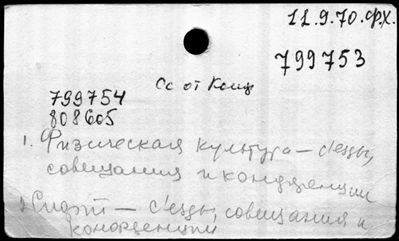 11.9.70.фх.
799753
Сс от Конц
799754
808605
1. Физическая культура — съезды,
совещания и конференции
2. Спорт — съезды, совещания и
конференции